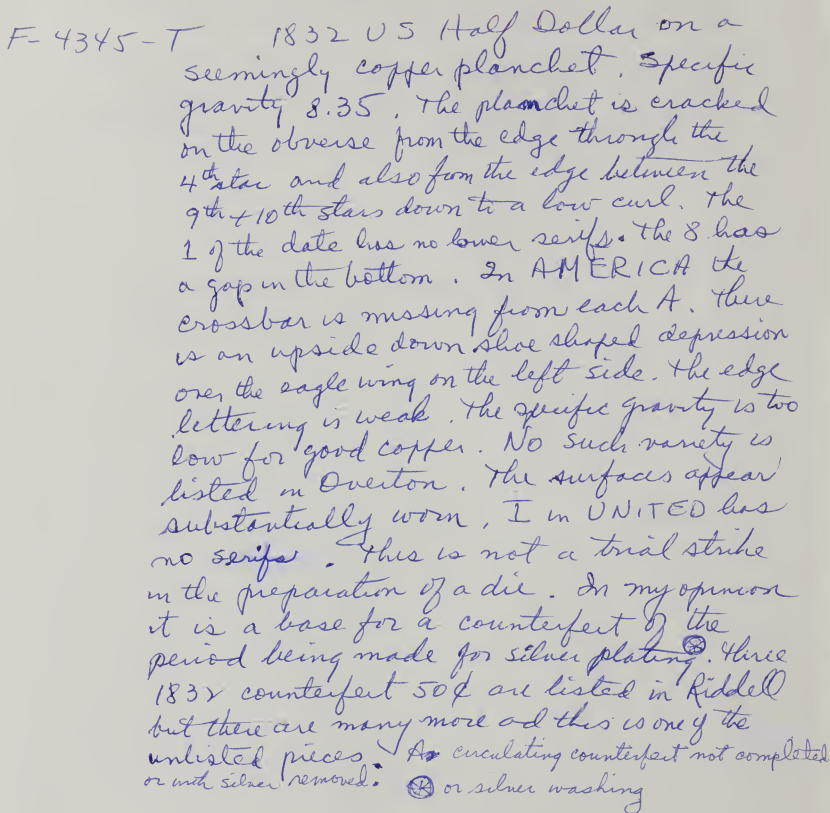 F-4345-T 1832 US Half Dollar on a
seemingly copper planchet. Specific
gravity 8.35. The planchet is cracked
on the obverse from the edge through the
4th star and also from the edge between the
9th + 10th stars down to a low curl. The
1 of the date has no lower serifs. The 8 has
a gap in the bottom. In AMERICA the
crossbar is missing from each A. There
is an upside down shoe shaped depression
over the eagle wing on the left side. The edge
lettering is weak. The specific gravity is too
low for good copper. No such variety is
listed in Overton. The surfaces appear
substantially worn. I in UNITED has
no serifs. This is not a trial strike
in the preparation of a die. In my opinion
it is a base for a counterfeit of the
period being made for silver plating ⊛. Three
1832 counterfeit 50¢ are listed in Riddell
but there are many more ad this is one of the
unlisted pieces. A circulating counterfeit not completed
or with silver removed. ⊛ or silver washing